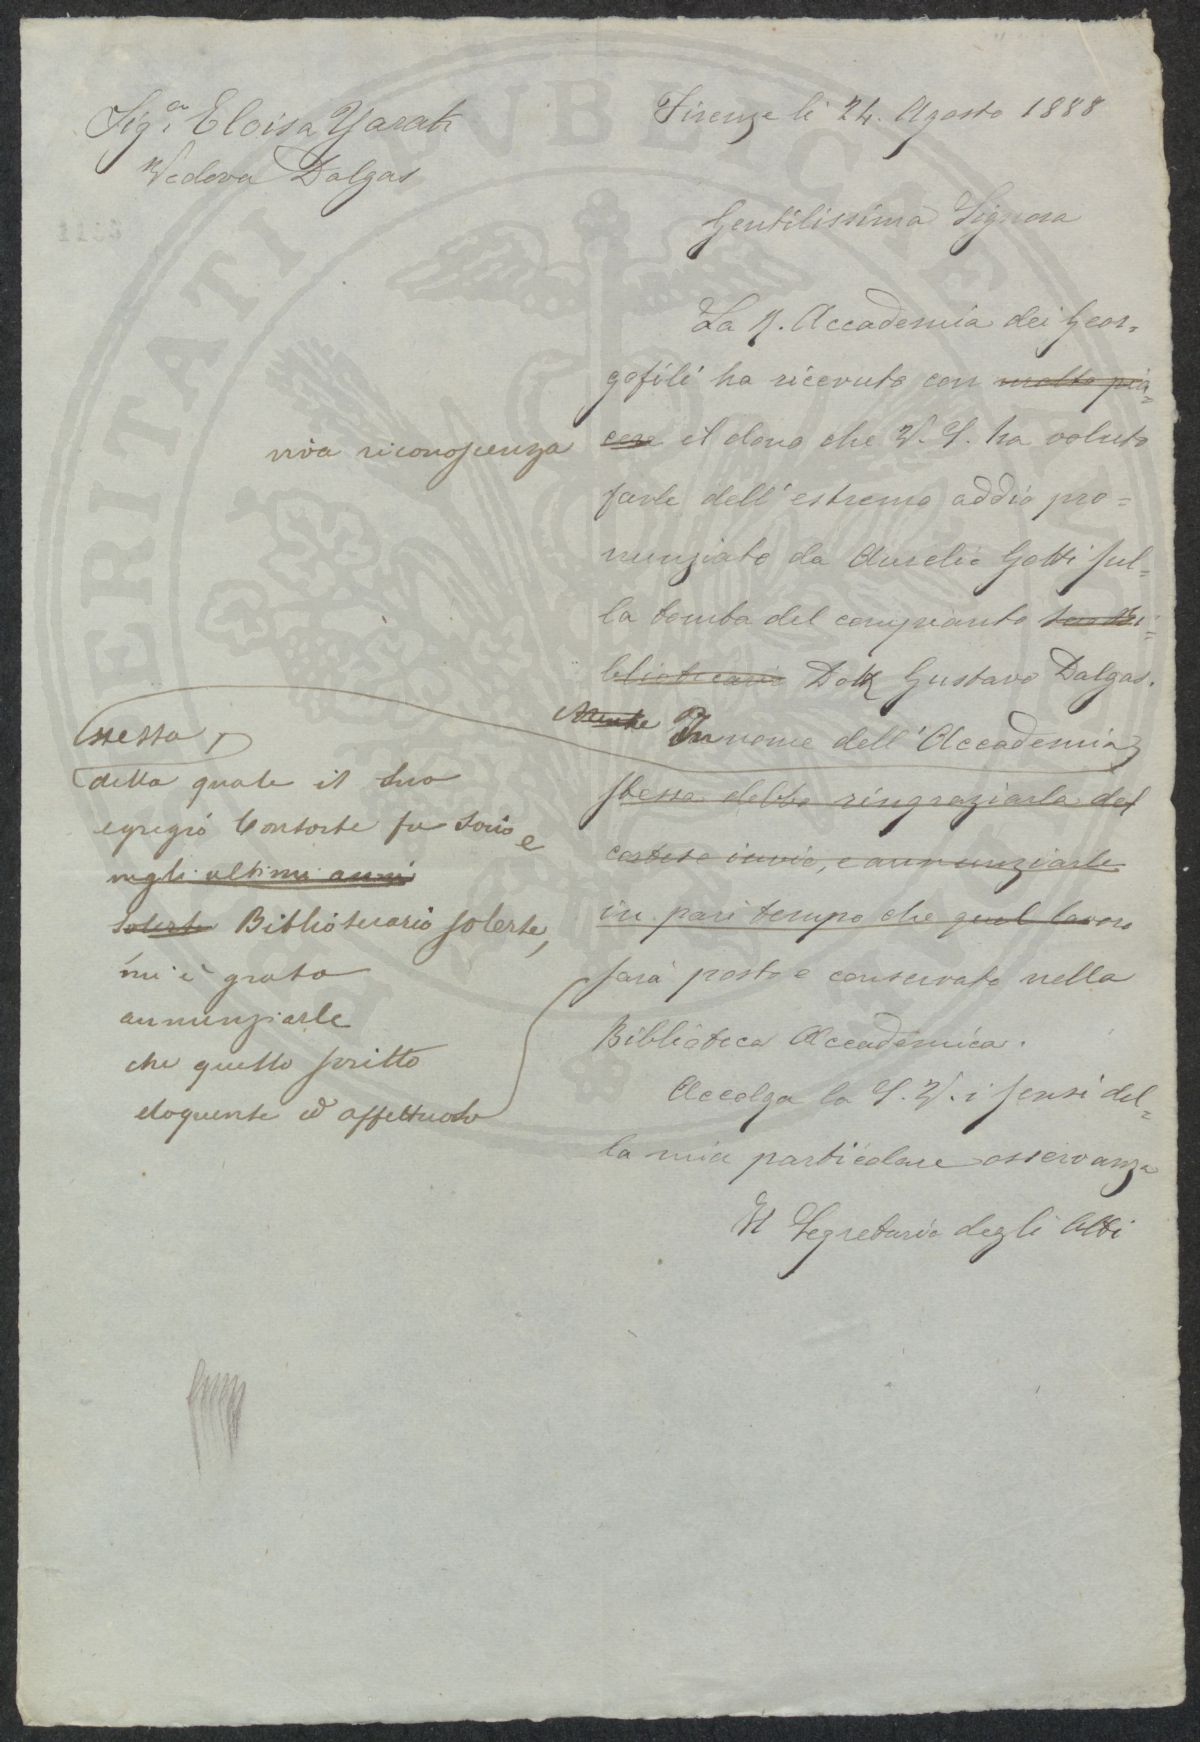 Firenze li 24. Agosto 1888
Sig.ra Eloisa
Vedova Dalgas
Gentilissima Signora
La R. Accademia dei Geor=
gofili ha ricevuto con molto pia=
cere il dono che V. S. ha voluto
viva riconoscenza
farle dell'estremo addio pro=
nunziato da Aurelio Gotti sul=
la tomba del compianto suo Bi=
bliotecario Dott. Gustavo Dalgas.
In nome dell'Accademia
stessa debbo ringraziarla del
cortese invio, e annunziarle
in pari tempo che quel lavoro
sarà posto e conservato nella
Biblioteca Accademica.
Accolga la S. V. i sensi del=
la mia particolare osservanza
Il Segretario degli Atti
stessa,
della quale il Suo
egregio Consorte fu Socio e
negli ultimi anni
solerte Bibliotecario solerte,
mi è grato
annunziarle
che quello scritto
eloquente ed affettuoso